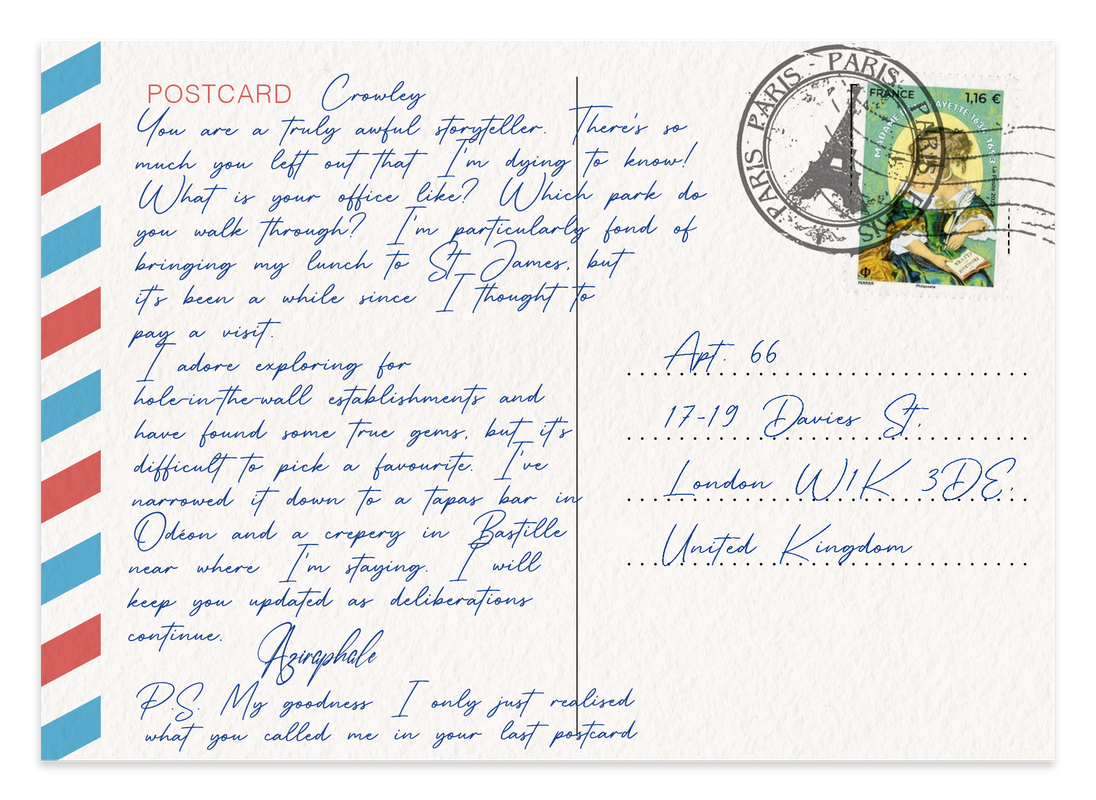 POSTCARD Crowley
You are a truly awful storyteller. There's so
much you left out that I'm dying to know!
What is your office like? Which park do
you walk through? I'm particularly fond of
bringing my lunch to St James, but
it's been a while since I thought to
pay a visit.
I adore exploring for
hole-in-the-wall establishments and
have found some true gems, but it's
difficult to pick a favourite. I've
narrowed it down to a tapas bar in
Odéon and a crepery in Bastille
near where I'm staying. I will
keep you updated as deliberations
continue.
Aziraphale
P.S. My goodness I only just realised
what you called me in your last postcard
PARIS - PARIS - PARIS
PARIS - PARIS
FRANCE 1,16 €
MADAME LAFAYETTE 1634-1693
Apt. 66
17-19 Davies St.
London W1K 3DE.
United Kingdom